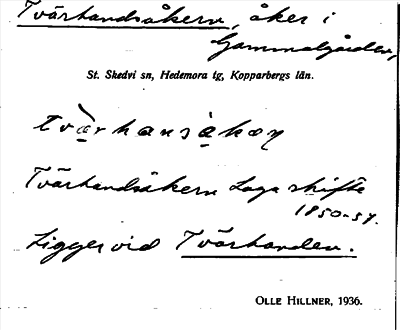 Tvärhandsåkern, åker i
Gammelgården,
St. Skedvi sn, Hedemora tg, Kopparbergs län.
Tvärhandsåkern Laga skifte
1850-57.
Ligger vid Tvärhanden.
OLLE HILLNER, 1936.